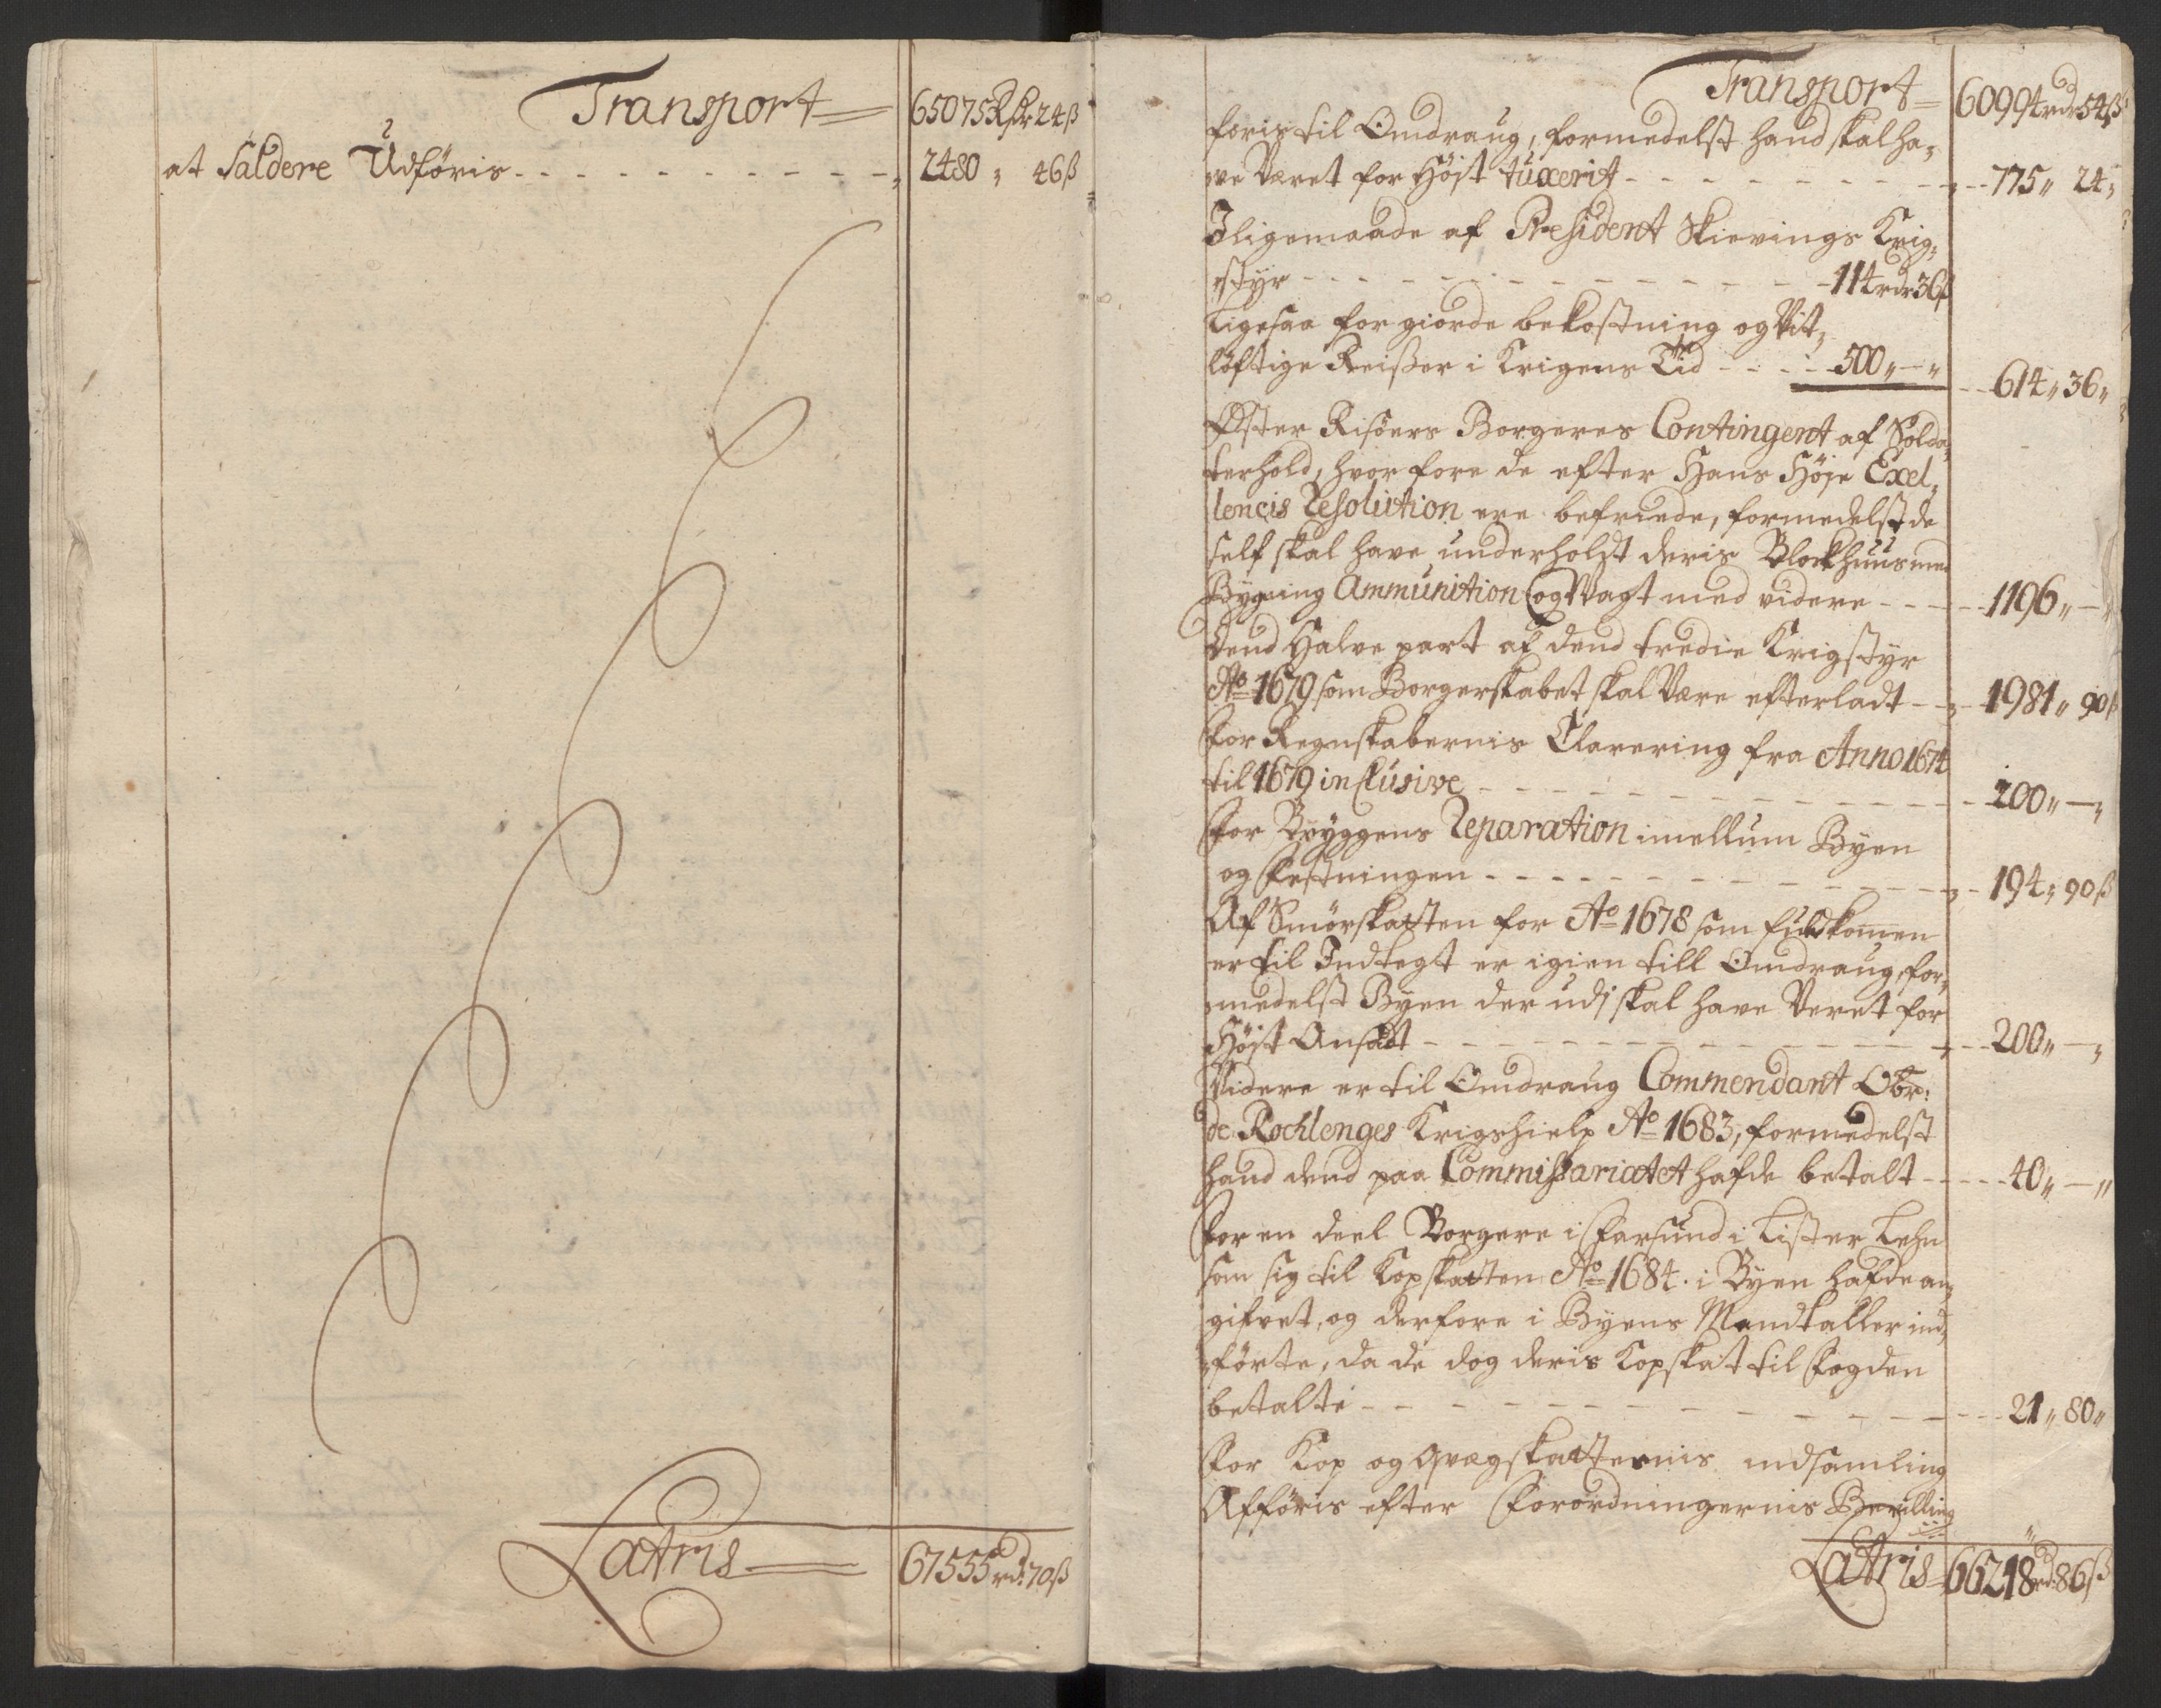 Transport 65075 Rdr 24 ß
at Saldere Udføris - - - - - 2480 " 46 ß
Latris 67555 rd: 70 ß
Transport 60994 rdr 54 ß
føris til Omdraug, formedelst hand skal ha-
ve Været for Høyt tuxerit - - - - - 775 " 24 "
Jligemaade af President Skievings Krig-
styr - - - - - 114 rdr 36 ß
Ligesaa for giorde bekostning og Vit-
løftige Reiser i Krigens Tid - - - 500 " — " - - 614 " 36 "
Øster Risøers Borgeres Contingent af Solda-
terhold, hvorfore de efter Hans Høje Exel-
lencis Resolution ere befriede, formedelst de
self skal have underholdt deris Blockhuus med
Bygning Ammunition og Vagt med videre - - - 1196 " — "
Dend Halve part af dend tredie Krigstyr
Ao 1679 som Borgerskabet skal Være efterladt - - 1981 " 90 ß
For Regnskabernis Clarering fra Anno 1674
til 1679 inclusive - - - - - 200 " — "
For Bryggens Reparation imellum Byen
og Festningen - - - - - 194 " 90 ß
Af Smørskatten for Ao 1678 som fuldkommen
er til Indtegt er igien till Omdraug, for-
medelst Byen der udj skal have Veret for
Høyt Ansadt - - - - - 200 " — "
Videre er til Omdraug Commendant Obr:
de Rochlenges Krigshielp Ao 1683, formedelst
hand dend paa Commissariatet hafde betalt - - - 40 " — "
For en deel Borgere i Farsund i Lister Lehn
som sig til Kopskatten Ao 1684. i Byen hafde an-
gifvet, og derfore i Byens Mandtaller ind-
førte, da de dog deris Kopskat til Fogden
betalte - - - - - 21 " 80 "
For Kop og Qvægskatternis indsamling
Afføris efter Forordningernis Bevilling
Latris 66218 rd: 86 ß